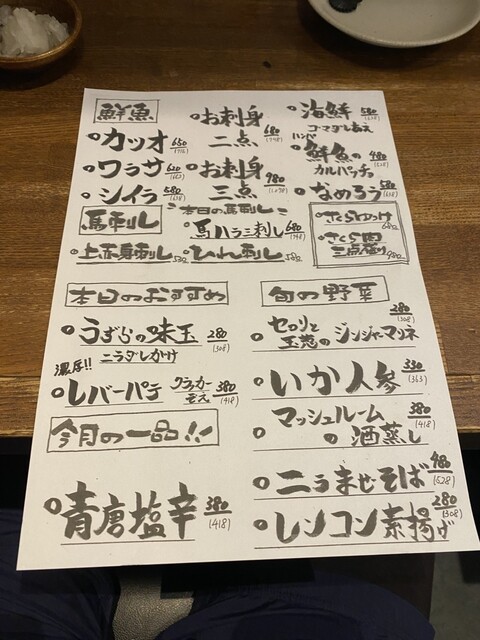 鮮魚
カツオ 650 (715)
ワラサ
シイラ 580 (638)
お刺身
二点 680 (748)
お刺身
三点 980 (1078)
海鮮 580 (638)
ゴマダレあえ
鮮魚の 480 (528)
カルパッチョ
なめろう 580 (638)
馬刺し
本日の馬刺し
馬ハラミ刺し 680 (748)
上赤身刺し
ひれ刺し
さくらユッケ
さくら肉
三点盛り
本日のおすすめ
うずらの味玉 280 (308)
ニラダレかけ
濃厚!!
レバーパテ クラッカー 380 (418)
今月の一品!!
青唐塩辛 380 (418)
旬の野菜
280 (308)
セロリと
玉葱のジンジャーマリネ
いか人参 330 (363)
マッシュルーム 380 (418)
の酒蒸し
ニラまぜそば 480 (528)
レンコン素揚げ 280 (308)